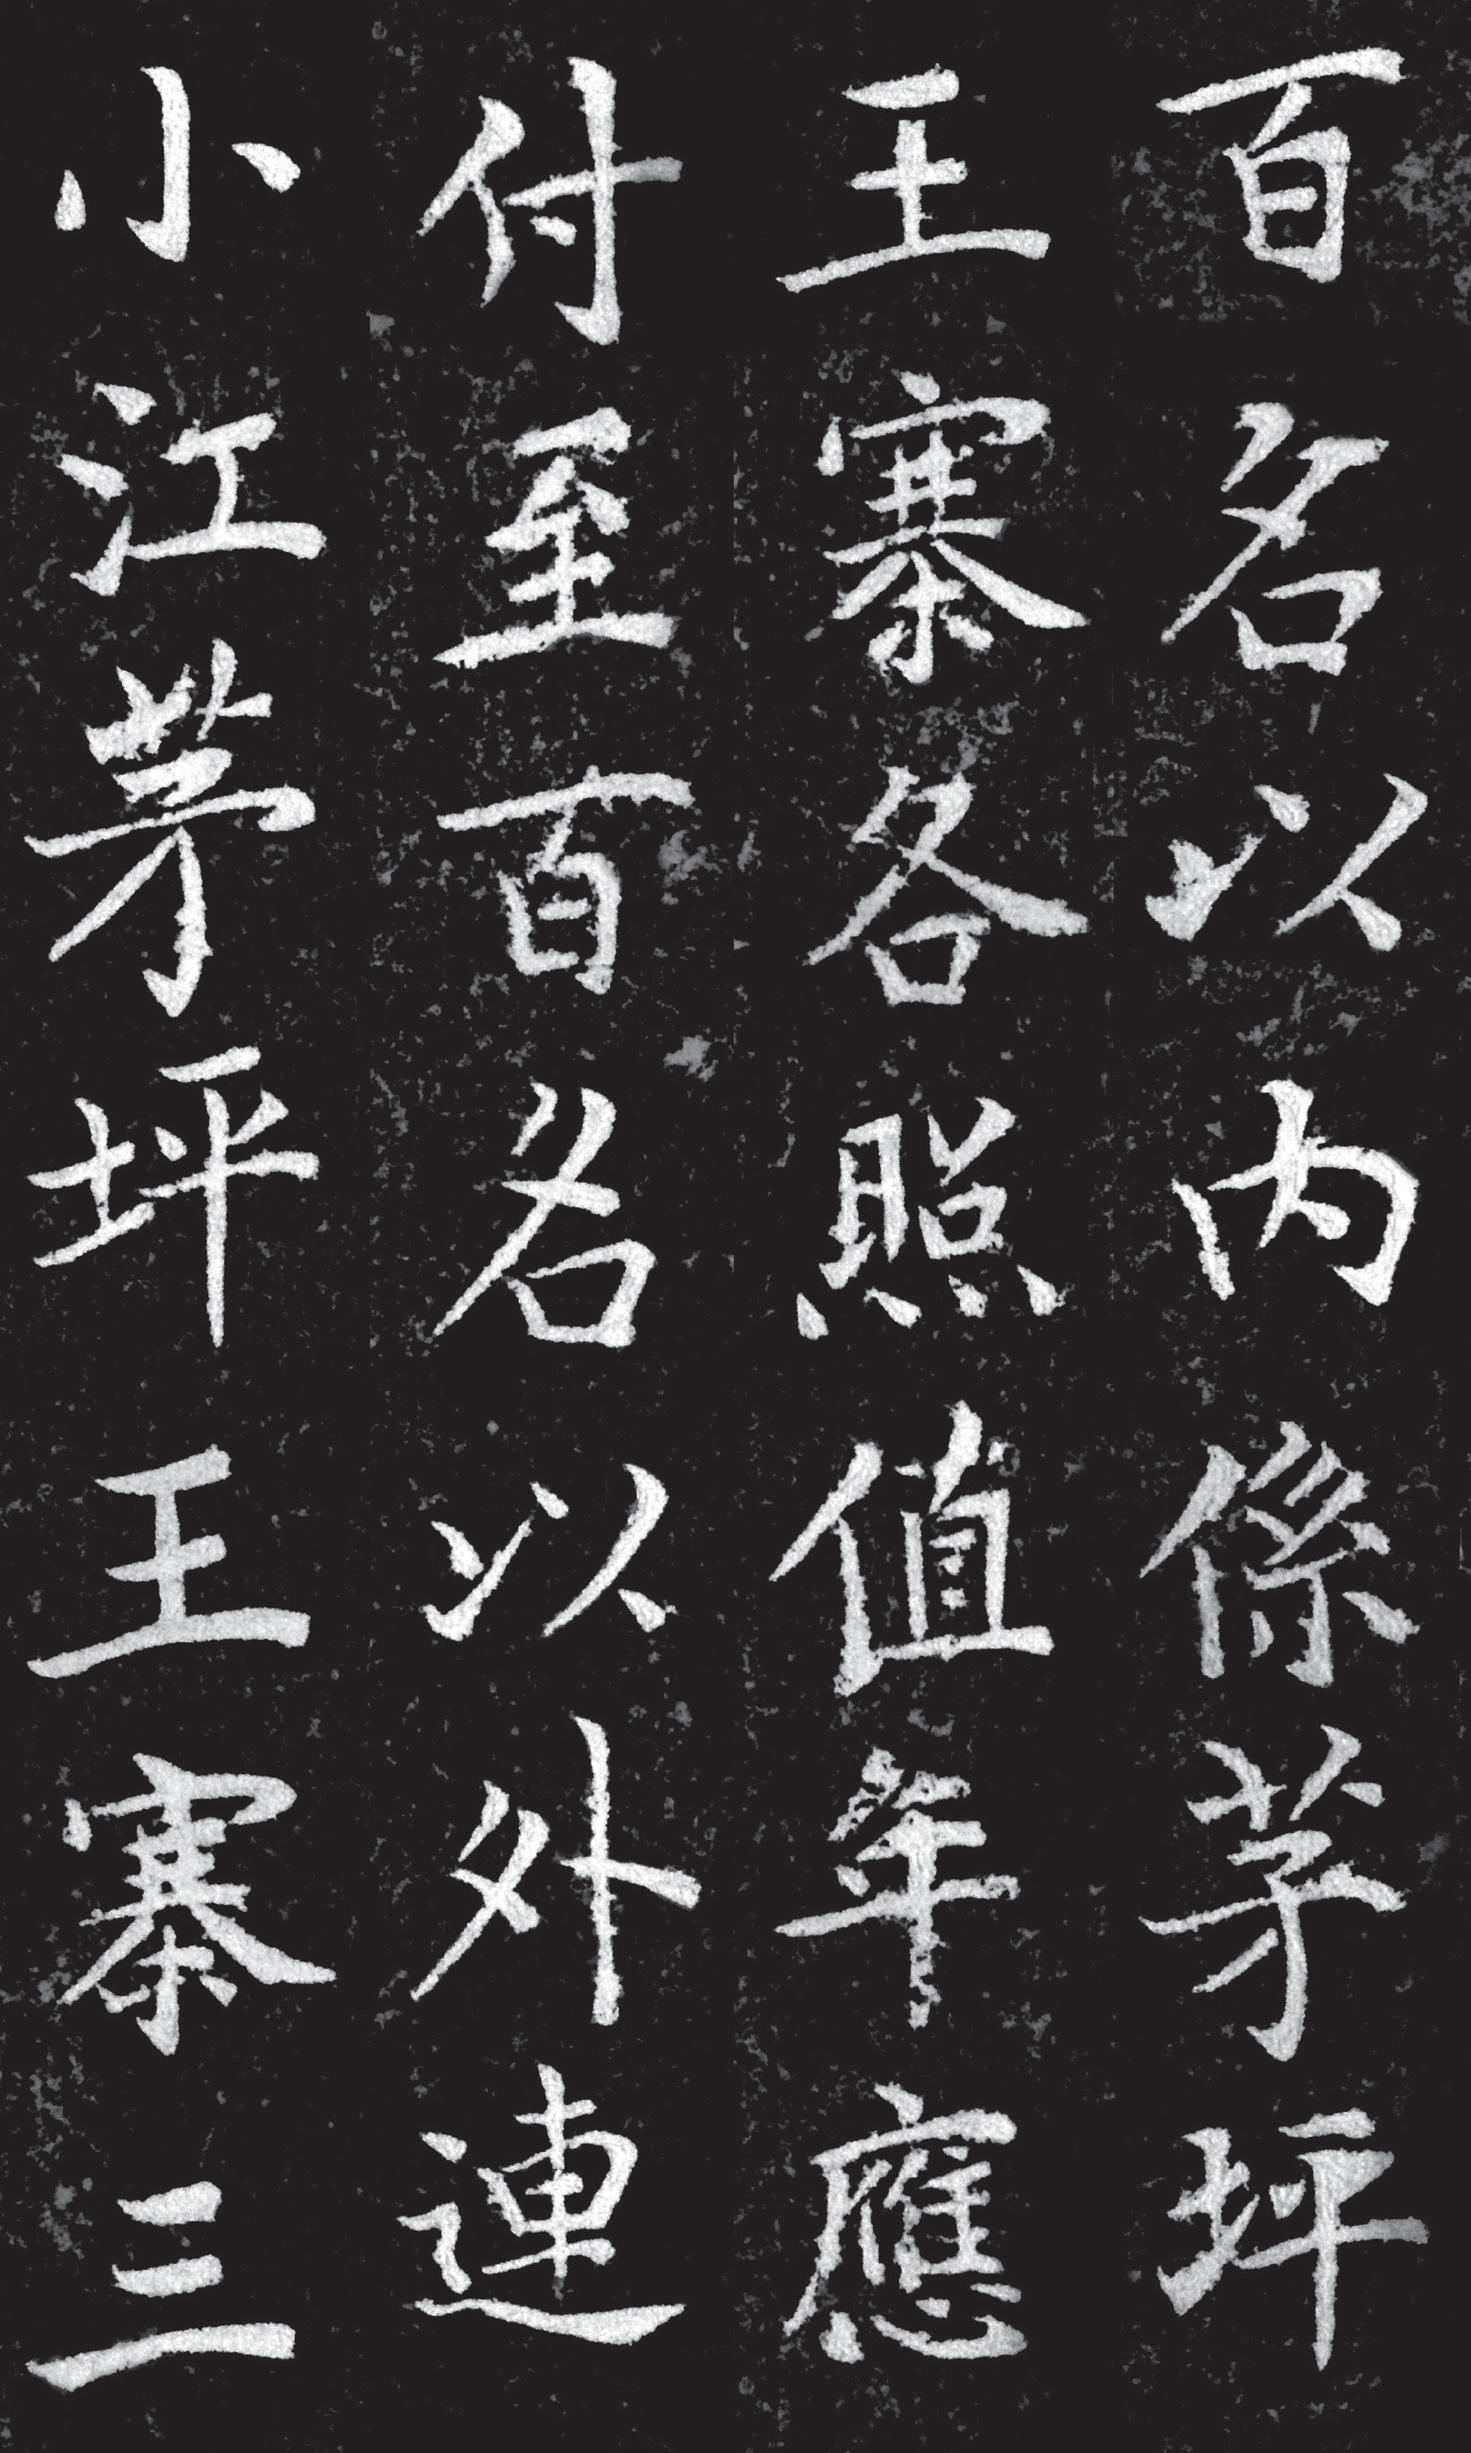 百名以内係茅坪
王寨各照值年應
付至百名以外連
小江茅坪王寨三